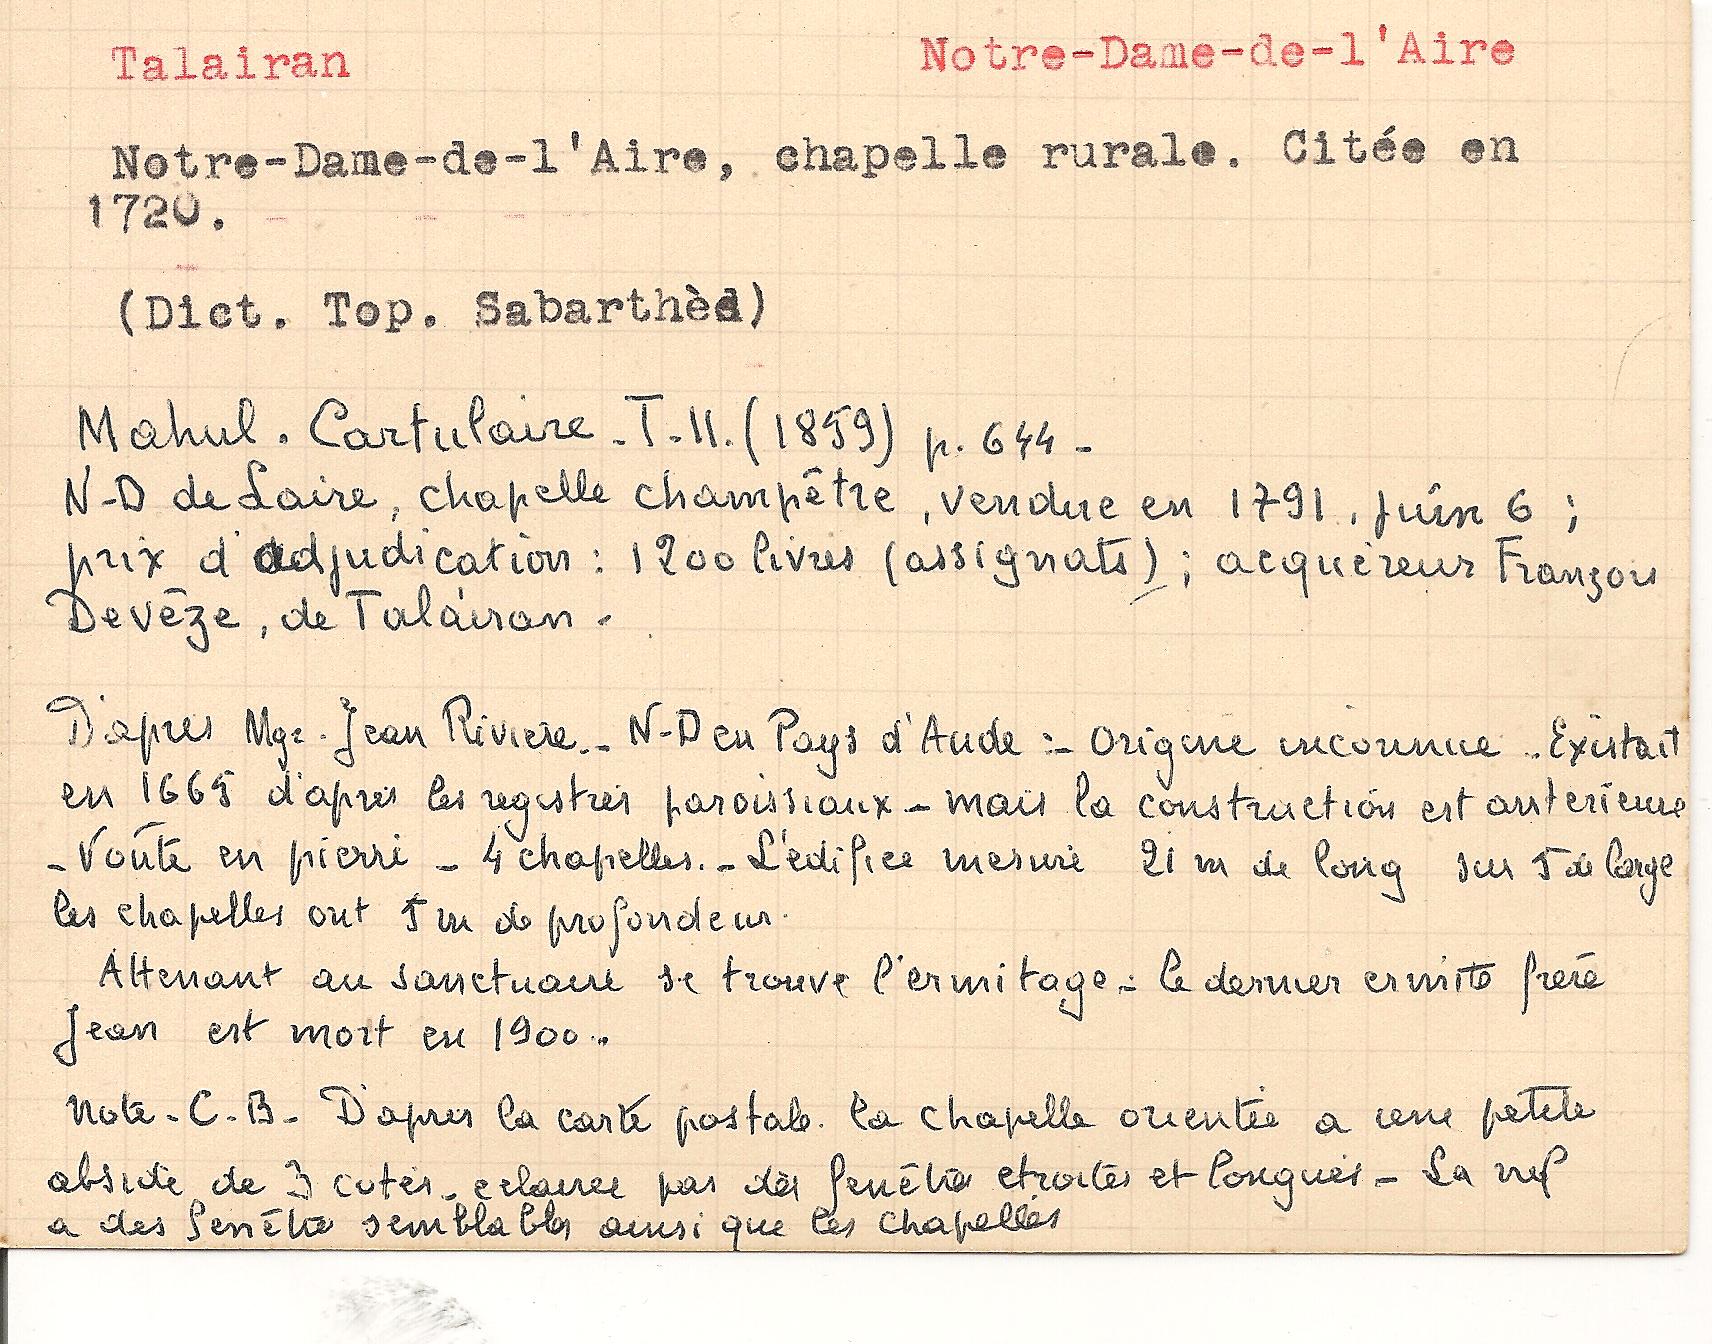 Talairan Notre-Dame-de-l'Aire
Notre-Dame-de-l'Aire, chapelle rurale. Citée en
1720.
(Dict. Top. Sabarthès)
Mahul. Cartulaire - T. II. (1859) p. 644 -
N-D de Laire, chapelle champêtre, vendue en 1791, juin 6 ;
prix d'adjudication : 1200 livres (assignats) ; acquéreur François
Devèze, de Talairan -
D'après Mgr. Jean Rivière. - N-D en Pays d'Aude :- Origine inconnue - Existait
en 1665 d'après les registres paroissiaux - mais la construction est antérieure
- Voûte en pierre - 4 chapelles. - L'édifice mesure 21 m de long sur 5 de large
les chapelles ont 5 m de profondeur.
Attenant au sanctuaire se trouve l'ermitage - le dernier ermite frère
Jean est mort en 1900 -
Note - C. B - D'après la carte postale. la chapelle orientée a une petite
abside de 3 cotés - eclairée par des fenêtres etroites et longues - La nef
a des fenêtres semblables ainsi que les chapelles